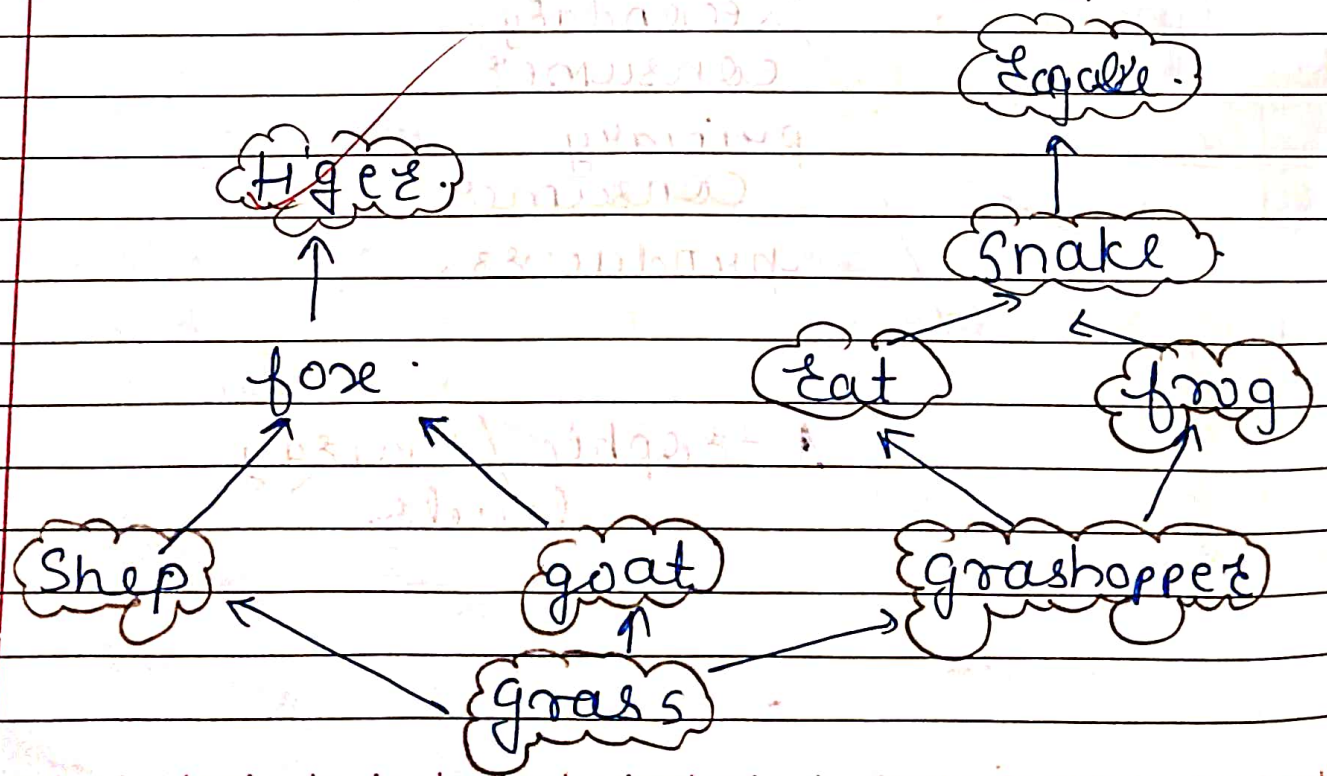 Tiger.
Snake
fox
rat
frog
Shep
goat
grashopper
grass